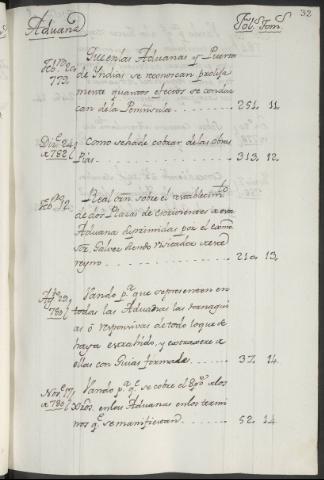 32
Aduana Fol.s Tom.s
Feb.ro 20
779. Que en las Aduanas y Puertos
de Yndias se reconoscan prolija
mente quantos efectos se condus
can dela Peninsula 251. 11
Dic.e 24
a 782 Como se há de cobrar de las obras
Pias 313. 12
Feb.ro 12. Real orn sobre el restablecim.to
de dos Plazas de escrivientes a esta
Aduana suprimidas por el exmô
Sor. Galvez siendo visitador a este
reyno 210. 13
Ag.to 29
780 Vando p.a que se presenten en
todas las Aduanas las tornaguí
as ó responsivas de todo loque se
haya extrahido, y extraxere a
ellas con Guias formada 37. 14
Nov.e 17
a 780 Vando p.a q.e se cobre el
enlas Aduanas en los termi
nos q.e se manifiestan 52. 14